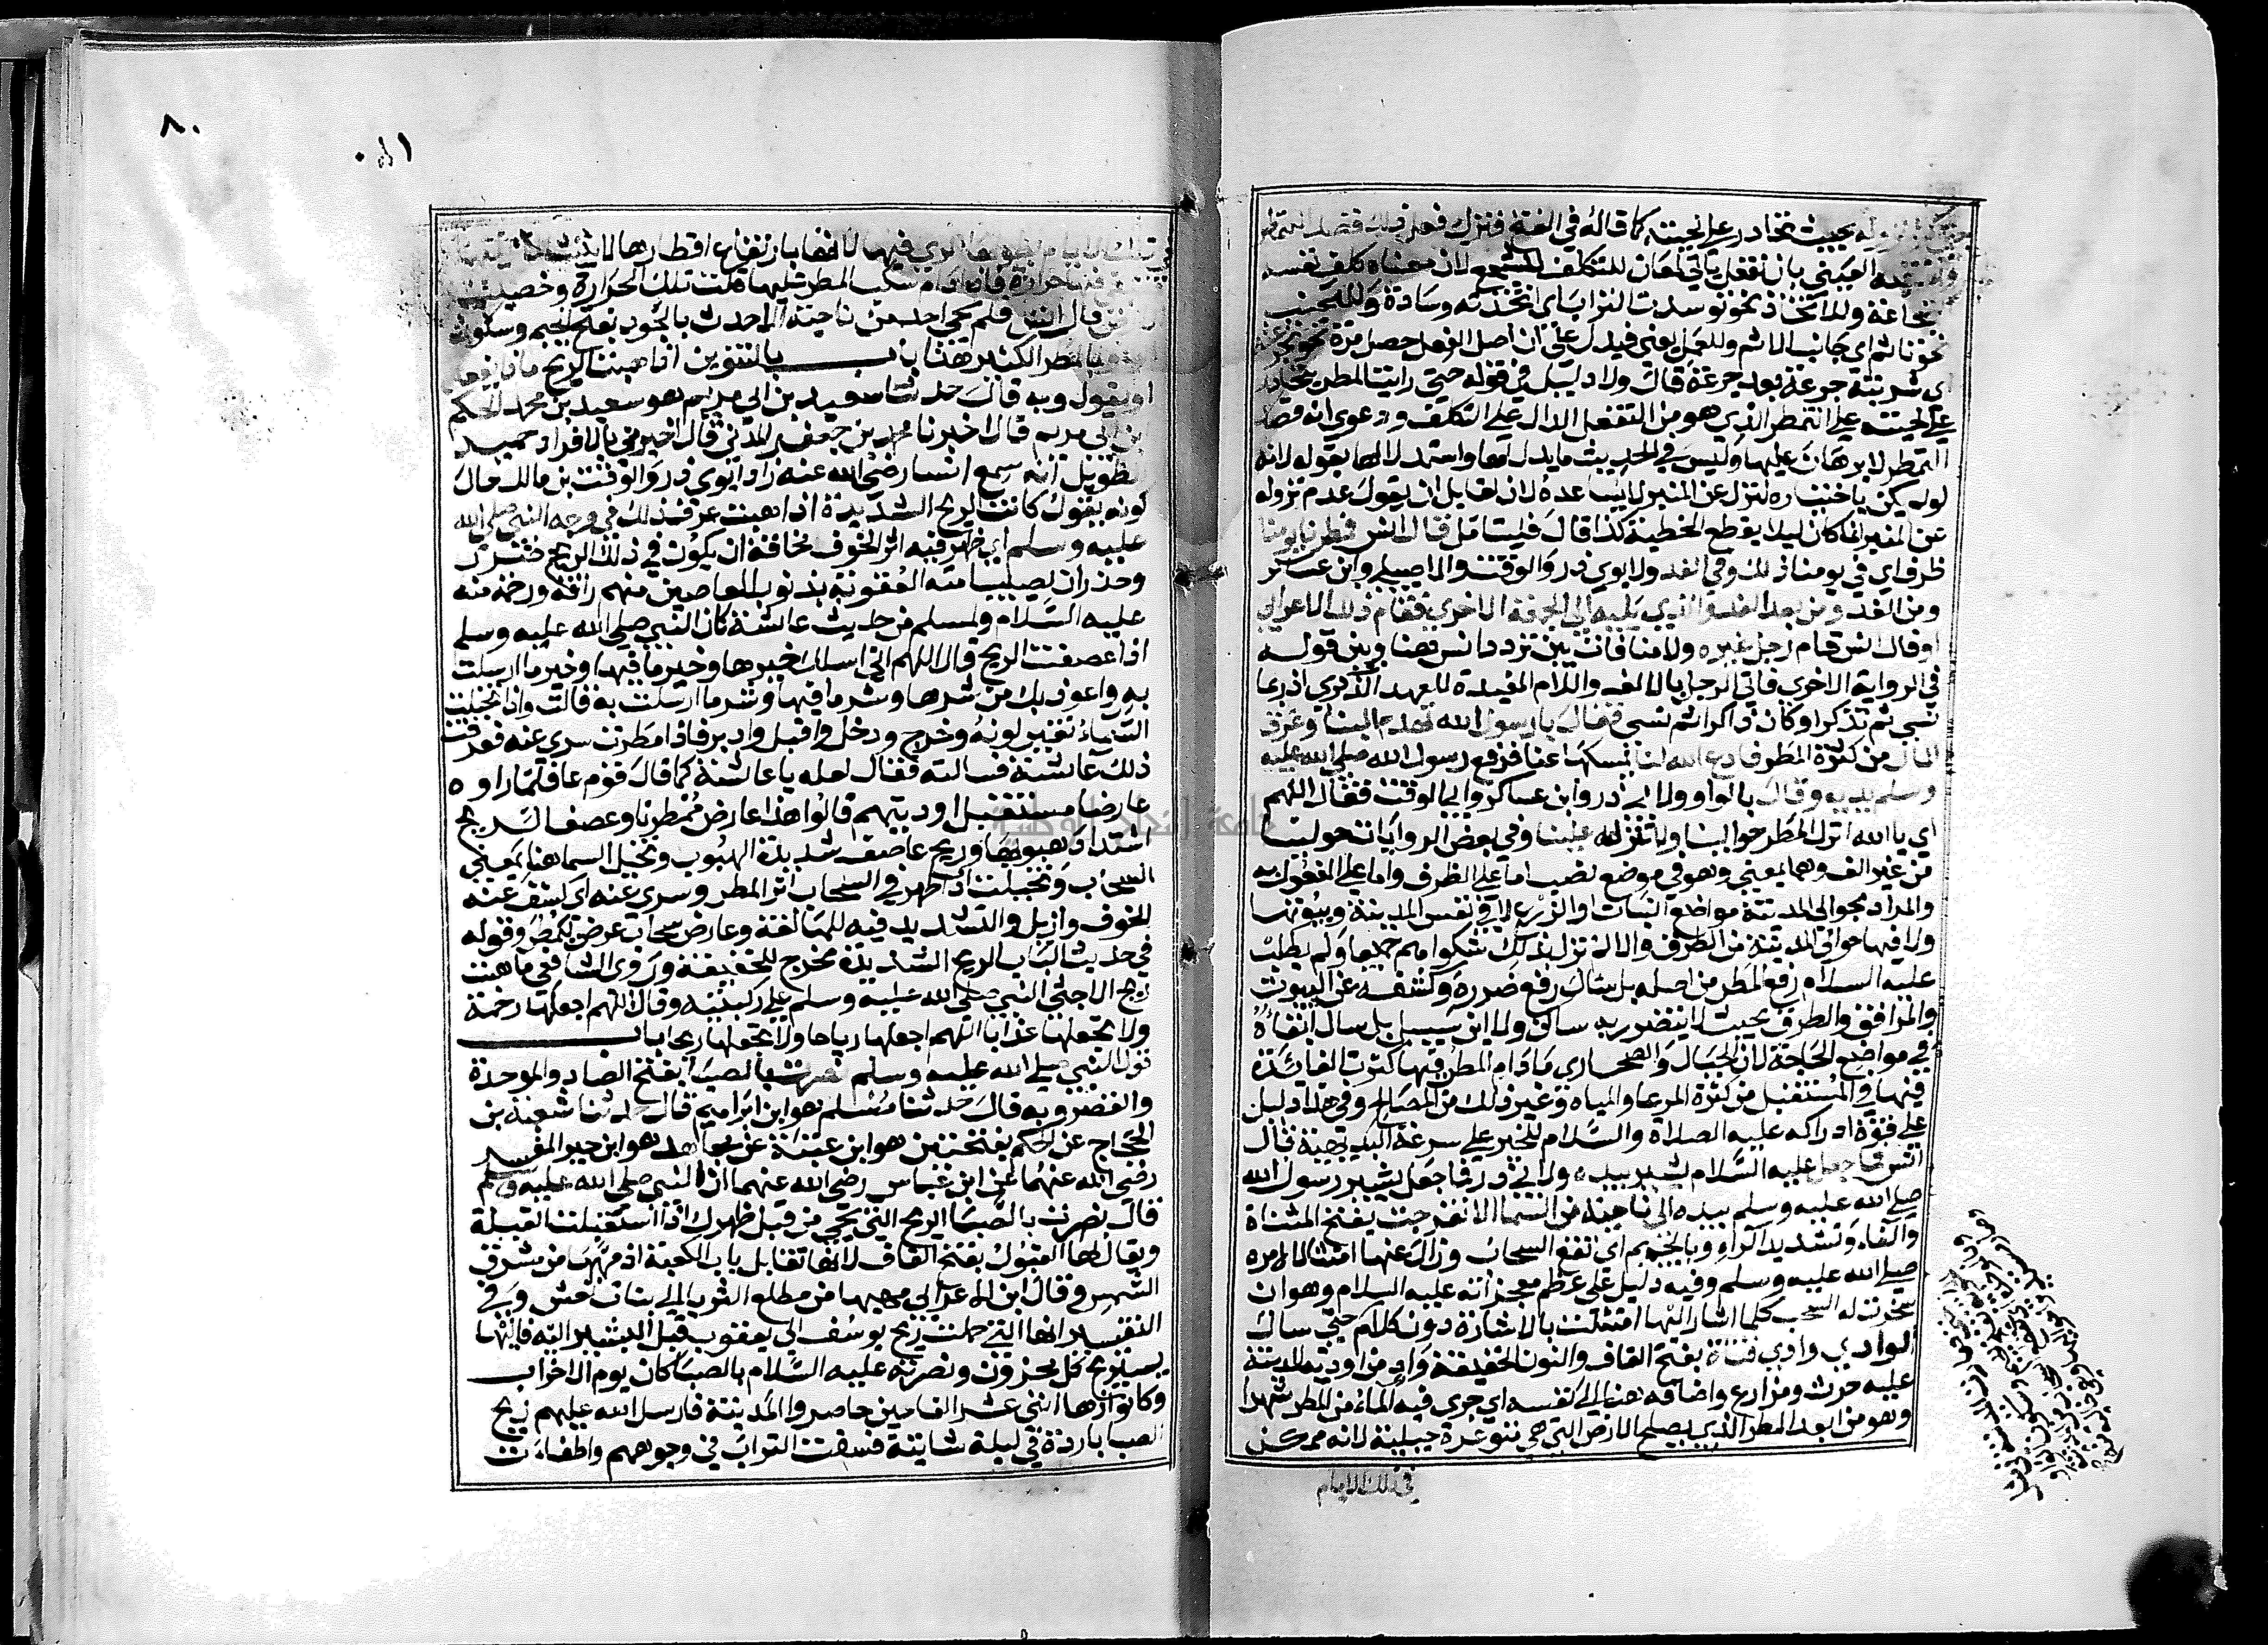 بحيث تحادر على لحيته كما قاله في الفتح فنزل فعلم فقصد التمطر
العيني بان تفعل ياتي لمعان للتكلف كتشجع لان معناه كلف نفسه
شجاعة وللاتخاذ نحو توسدت التراب اي اتخذته وسادة وللتجنب
نحو تاثم اي جانب الاثم وللعمل يعني فيدل على ان اصل الفعل حصل مرة نحو تجرعته
اي شربته جرعة بعد جرعة قال ولا دليل في قوله حتى رايت المطر يتحادر
على لحيته على التمطر الذي هو من التفعل الدال على التكلف ودعوي انه قصد
التمطر لا برهان عليها وليس في الحديث ما يدل لها واستدلالها بقوله لانه
لو لم يكن باختياره لنزل عن المنبر لا يساعده لان لقايل ان يقول عدم نزوله
عن المنبر انما كان ليلا يقطع الخطبة كذا قال فليتامل قال انس فمطرنا يومنا
ظرف اي في يومنا ذلك وفي الغد ولابوي ذر والوقت والاصيلي وابن عساكر
ومن الغد ومن بعد الغد والذي يليه الي الجمعة الاخري فقام ذلك الاعرابي
او قال انس قام رجل غيره ولا منافات بين تردد انس هنا وبين قوله
في الرواية الاخري فاتي الرجل بالالف واللام المفيدة للعهد الذكري اذ ربما
نسي ثم تذكر او كان ذاكرا ثم نسي فقال يا رسول الله تهدم البنا وغرق
المال من كثرة المطر فادع الله لنا يمسكها عنا فرفع رسول الله صلى الله عليه
وسلم يديه وقال بالواو ولابي ذر وابن عساكر وابي الوقت فقال اللهم
اي يا الله انزل المطر حوالينا ولا تنزله علينا وفي بعض الروايات حولينا
من غير الف وهما بمعني وهو في موضع نصب اما على الظرف واما على المفعول به
والمراد بحوالي المدينة مواضع النبات او الزرع لا في نفس المدينة وبيوتها
ولا فيما حوالي المدينة من الطرق والا لم تزل بذلك شكواهم جميعا ولم يطلب
عليه السلام رفع المطر من اصله بل سال رفع ضرره وكشفه عن البيوت
والمرافق والطرق بحيث لا يتضرر به ساكن ولا ابن سبيل بل سال ابقاءه
في مواضع الحاجة لان الجبال والصحاري مادام المطر فيها كثرت الفائدة
فيها في المستقبل من كثرة المرعا والمياه وغير ذلك من المصالح وفي هذا دليل
على قوة ادراكه عليه الصلاة والسلام للخير على سرعة البديهة قال
انس فما جعل عليه السلام يشير بيده ولابي ذر فما جعل يشير رسول الله
صلى الله عليه وسلم بيده الي ناحية من السما الا تفرجت بفتح المثناة
والفاء وتشديد الراء وبالجيم اي تقطع السحاب وزال عنها امتثالا لامره
صلى الله عليه وسلم وفيه دليل على عظم معجزاته عليه السلام وهو ان
سخرت له السحب كلما اشار اليها امتثلت بالاشارة دون كلام حتى سال
الوادي وادي قناة بفتح القاف والنون الخفيفة واد من اودية المدينة
عليه حرث ومزارع واضافه هنا الي نفسه اي جري فيه الماء من المطر شهرا
وهو من ابعد المطر الذي يصلح الارض التي هي متوعرة جبلية لانه ممكن
في تلك الايام
٨٠
في تلك الايام لطولها الري فيها لانها بارتفاع اقطارها لا يثبت الماء
فيها حرارة فاذا دام سكب المطر عليها قلت تلك الحرارة وخصبت
قال انس فلم يجي احد من ناحية الا حدث بالجود بفتح الجيم وسكون
بالمطر الكثير هذا باب بالتنوين اذا هبت الريح ماذا يفعل
او يقول وبه قال حدثنا سعيد بن ابي مريم هو سعيد بن محمد الحكم
بن ابي مريم قال اخبرنا محمد بن جعفر المدني قال اخبرني بالافراد حميد
الطويل انه سمع انسا رضي الله عنه زاد ابوي ذر والوقت بن مالك حال
كونه يقول كانت الريح الشديدة اذا هبت عرف ذلك في وجه النبي صلى الله
عليه وسلم اي ظهر فيه اثر الخوف مخافة ان يكون في ذلك الريح ضرر
وحذر ان يصيب امته العقوبة بذنوب العاصين منهم رافة ورحمة منه
عليه السلام ولمسلم من حديث عائشة كان النبي صلى الله عليه وسلم
اذا عصفت الريح قال اللهم اني اسلك خيرها وخير ما فيها وخير ما ارسلت
به واعوذ بك من شرها وشر ما فيها وشر ما ارسلت به قالت واذا تخيلت
السماء تغير لونه وخرج ودخل واقبل وادبر فاذا مطرت سري عنه فعرفت
ذلك عائشة فسالته فقال لعله يا عائشة كما قال قوم عاد فلما راوه
عارضا مستقبل اوديتهم قالوا هذا عارض ممطرنا وعصف الريح
اشتداد هبوبها وريح عاصف شديدة الهبوب وتخيل السما هنا بمعني
السحاب وتخيلت اذا ظهر في السحاب اثر المطر وسري عنه اي كشف عنه
الخوف وازيل والتشديد فيه للمبالغة وعارض سحاب عرض ليمطر وقوله
في حديث الباب الريح الشديدة مخرج للخفيفة وروي الشافعي ما هبت
ريح الا جثي النبي صلى الله عليه وسلم على ركبتيه وقال اللهم اجعلها رحمة
ولا تجعلها عذابا اللهم اجعلها رياحا ولا تجعلها ريحا باب
قول النبي صلى الله عليه وسلم نصرت بالصبا بفتح الصاد والموحدة
والقصر وبه قال حدثنا مسلم هو ابن ابراهيم قال حدثنا شعبة بن
الحجاج عن الحكم بفتحتين هو ابن عتيبة عن مجاهد هو ابن جبر المفسر
رضي الله عنهما عن ابن عباس رضي الله عنهما ان النبي صلى الله عليه وسلم
قال نصرت بالصبا الريح التي تجي من قبل ظهرك اذا استقبلت القبلة
ويقال لها القبول بفتح القاف لانها تقابل باب الكعبة اذ مهبها من مشرق
الشمس وقال ابن الاعرابي مهبها من مطلع الثريا الي بنات نعش وفي
التفسير انها التي حملت ريح يوسف الي يعقوب قبل البشير اليه فاليها
يستريح كل محزون ونصرته عليه السلام بالصبا كان يوم الاحزاب
وكانوا زهاء اثني عشر الفا حين حاصروا المدينة فارسل الله عليهم ريح
الصبا باردة في ليلة شاتية فسفت التراب في وجوههم واطفات